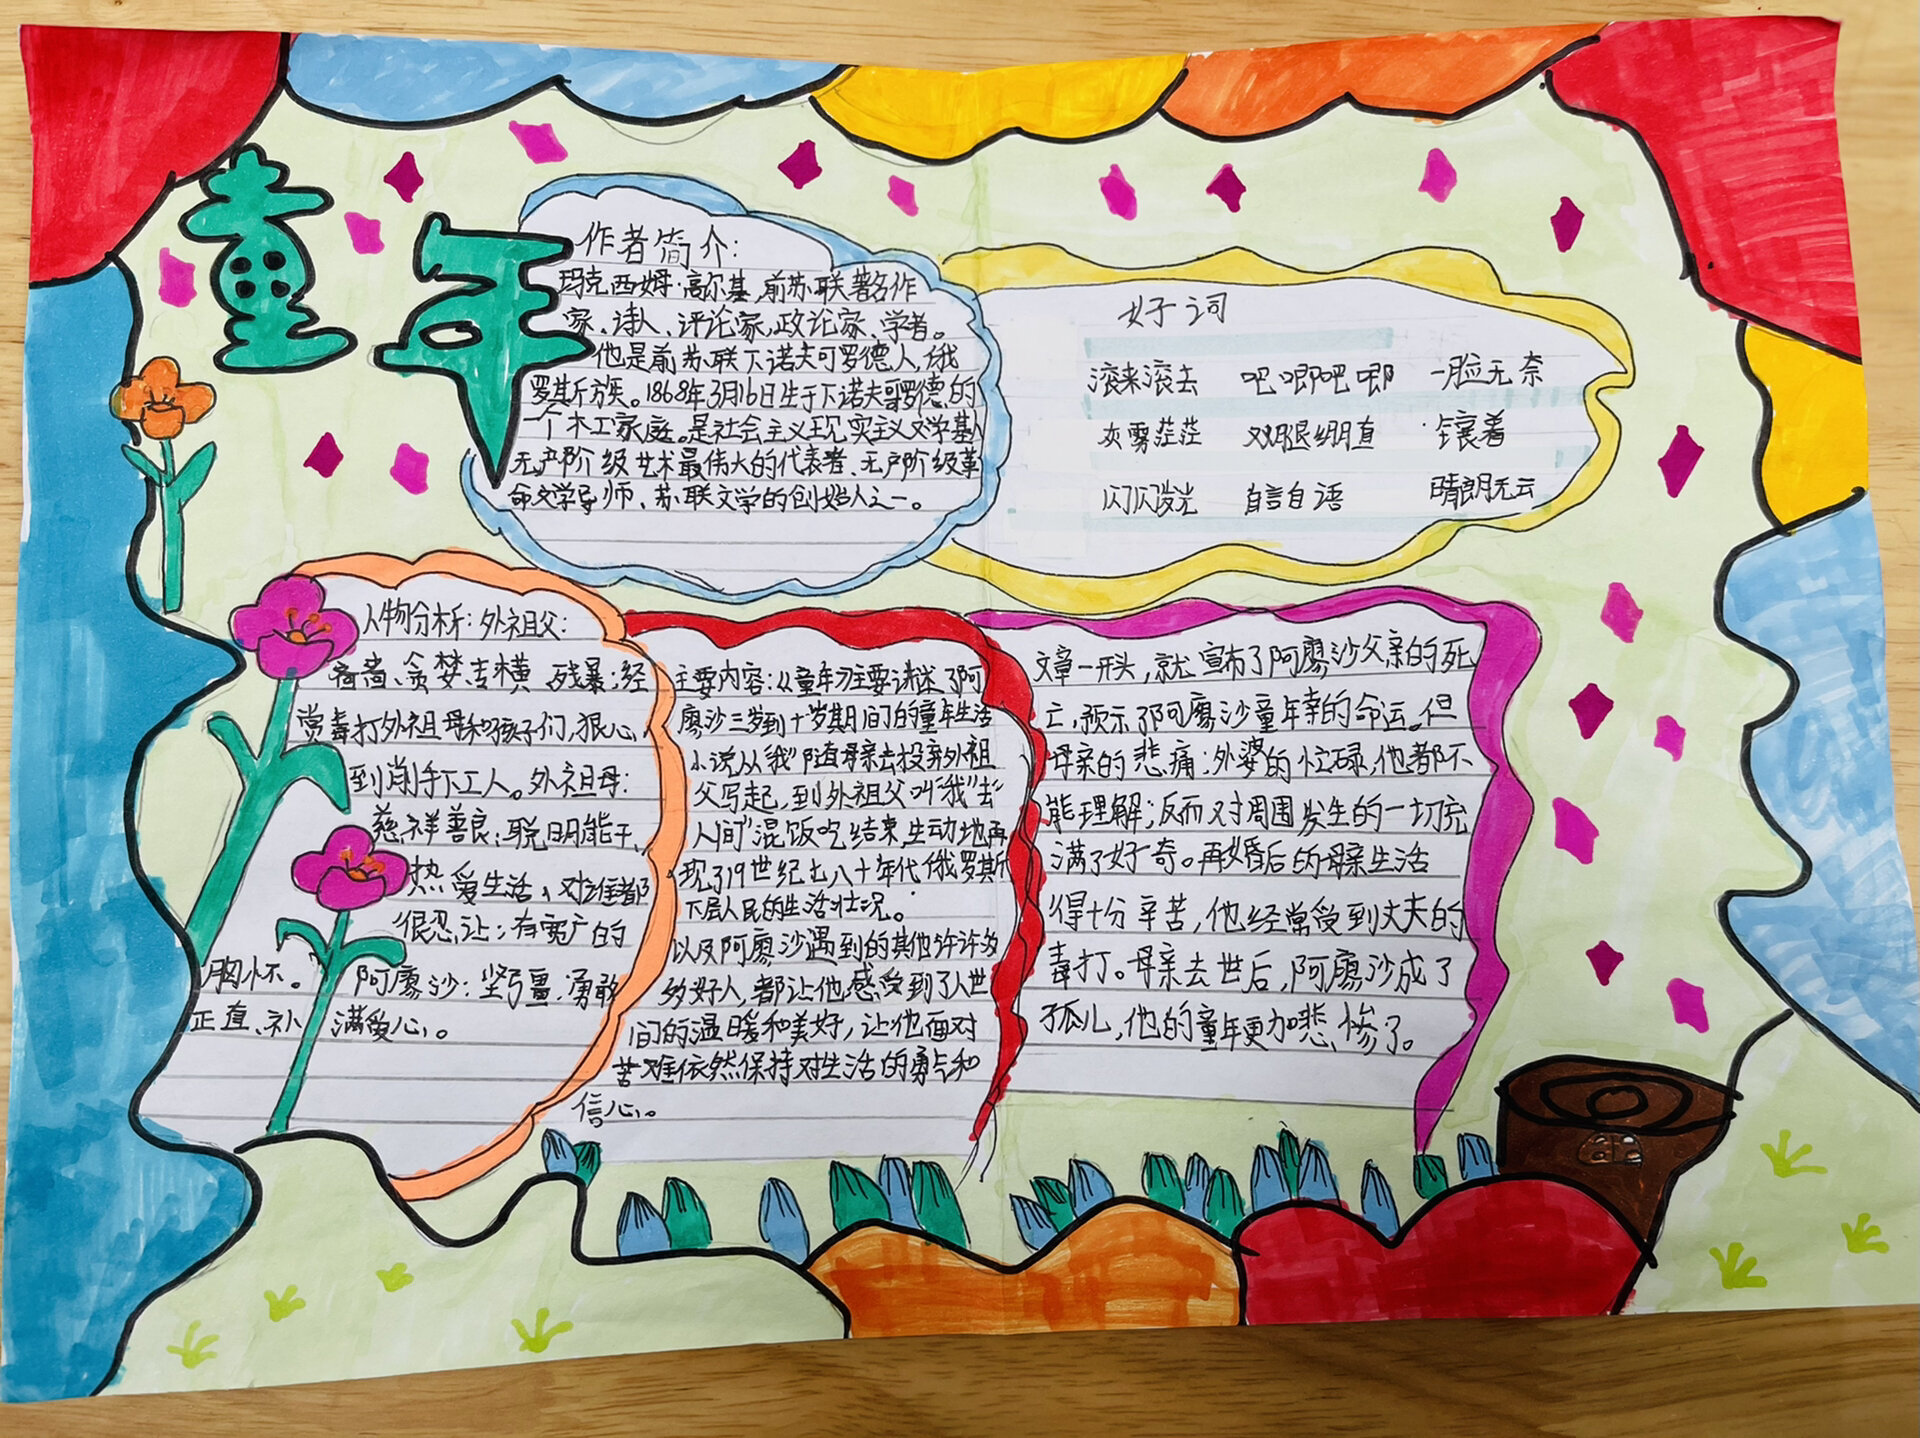 童年
作者简介：
玛克西姆·高尔基，前苏联著名作
家、诗人、评论家，政论家、学者。
他是前苏联下诺夫可罗德人，俄
罗斯族。1868年3月16日生于下诺夫哥罗德的
一个木工家庭。是社会主义现实主义文学基人
无产阶级艺术最伟大的代表者、无产阶级革
命文学导师、苏联文学的创始人之一。
好词
滚来滚去 吧唧吧唧 一脸无奈
灰雾茫茫 双腿绷直 镶着
闪闪发光 自言自语 晴朗无云
人物分析：外祖父：
贪婪 横 残暴；经
常毒打外祖母和孩子们，狠心
到削手下工人。外祖母：
慈祥善良；聪明能干、
热爱生活、对谁都
很忍让；有宽广的
胸怀。阿廖沙：坚强、勇敢
正直、 满爱心。
主要内容：从童年主要讲述了阿
廖沙三岁到十岁期间的童年生活
小说从“我”随母亲去投奔外祖
父写起，到外祖父叫“我”去“
人间”混饭吃结束，生动地再
现了19世纪七八十年代俄罗斯
下层人民的生活状况。
以及阿廖沙遇到的其他许许多
多好人，都让他感受到了人世
间的温暖和美好，让他面对
苦难依然保持对生活的勇气和
信心。
文章一开头，就宣布了阿廖沙父亲的死
亡，预示了阿廖沙童年幸的命运。但
母亲的悲痛；外婆的忙碌，他都不
能理解；反而对周围发生的一切充
满了好奇。再婚后的母亲生活
得十分辛苦，他经常受到丈夫的
毒打。母亲去世后，阿廖沙成了
孤儿，他的童年更加悲惨了。